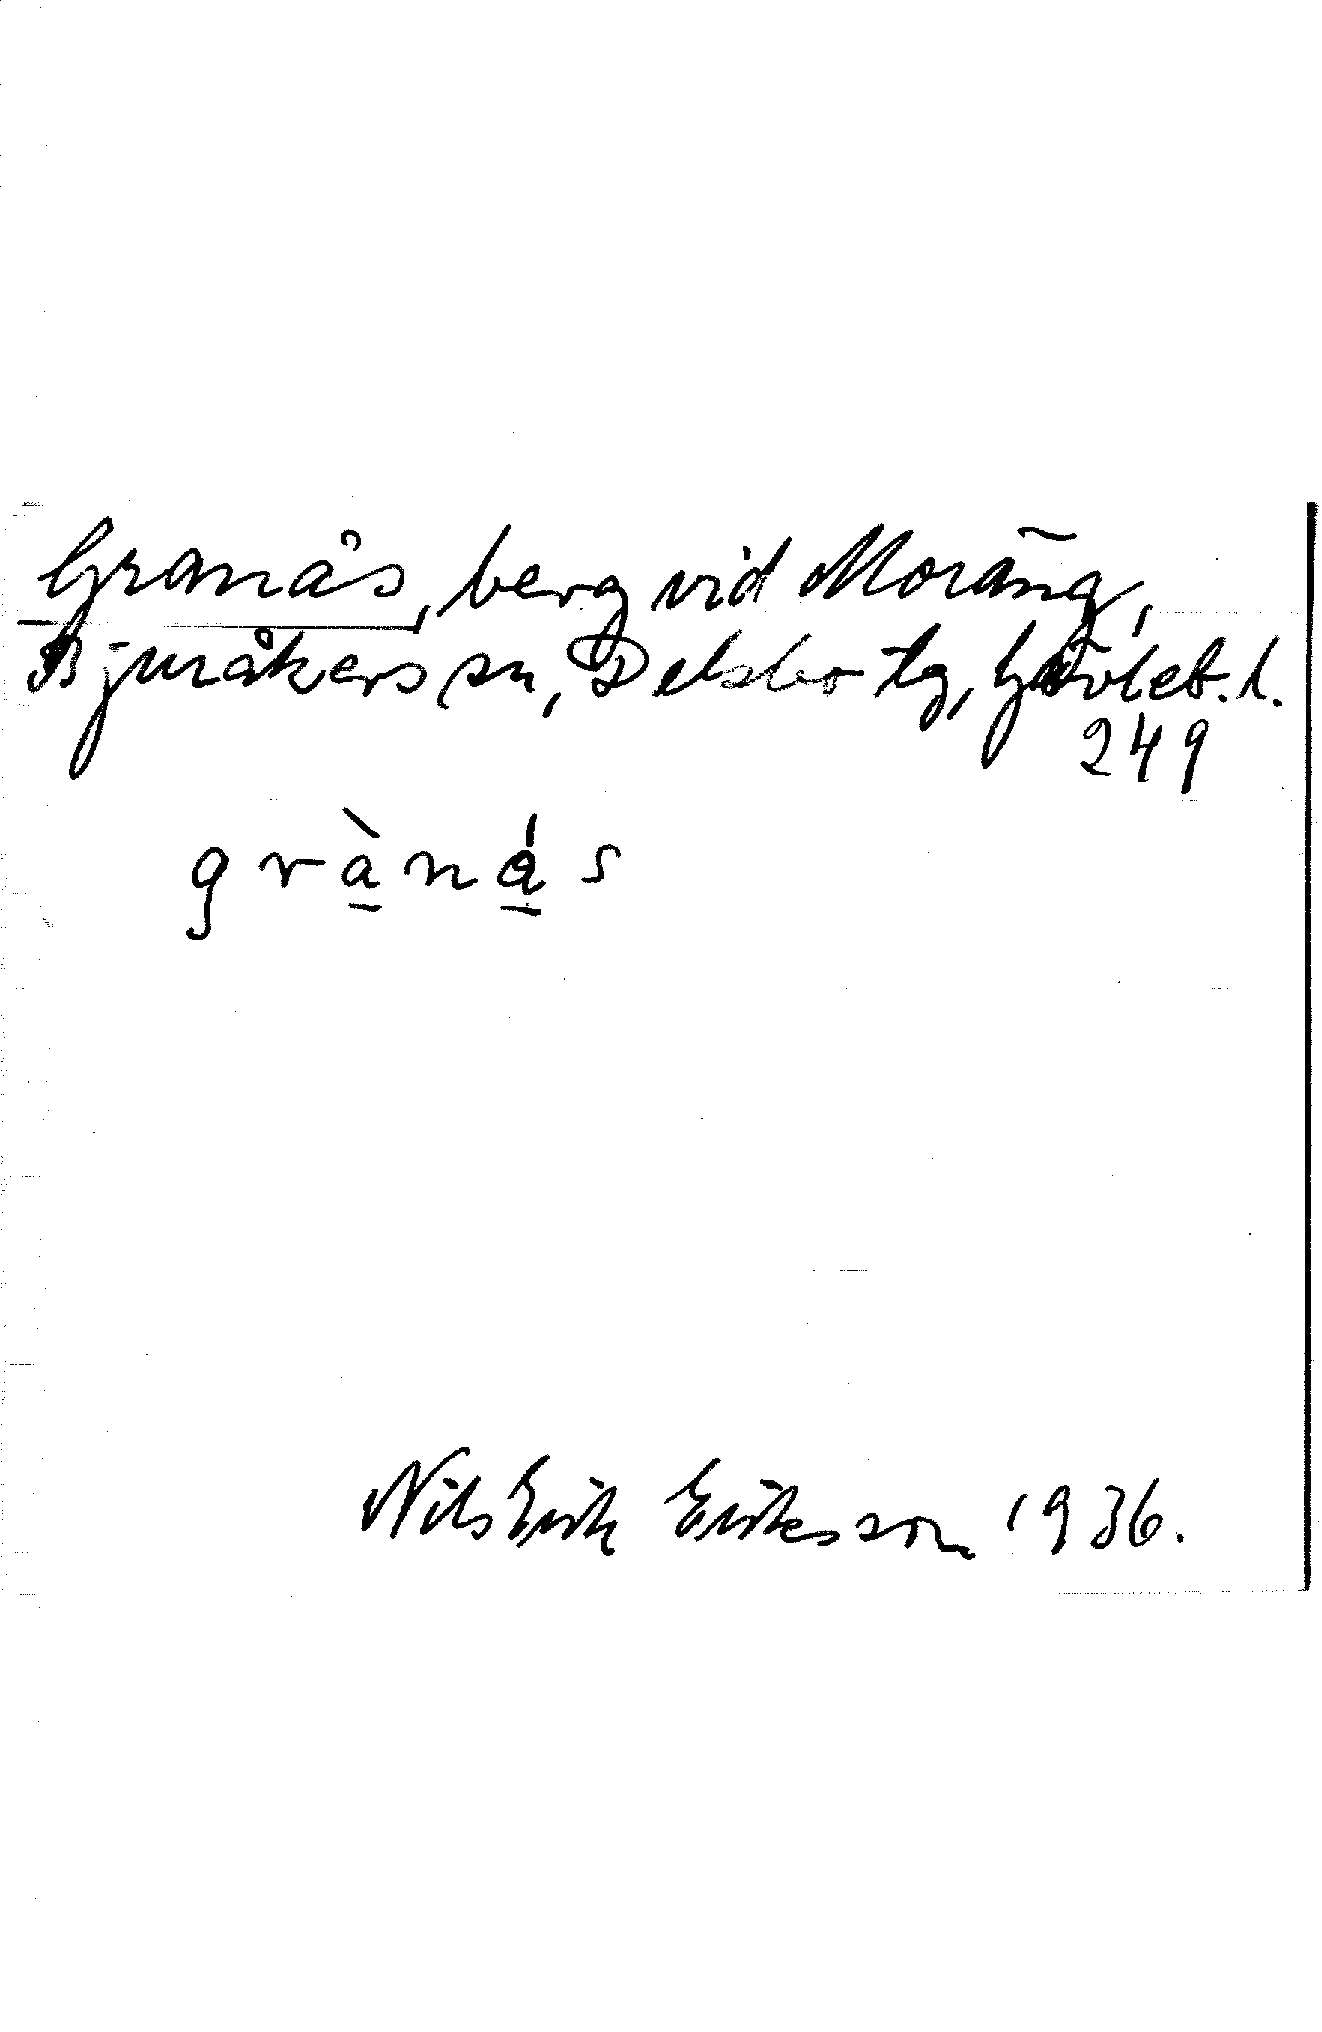 Granås, berg vid Moräng,
Bjuråkers sn, Delsbo tg, Gävleb. l.
249
grànás
Nils Erik Eriksson 1936.